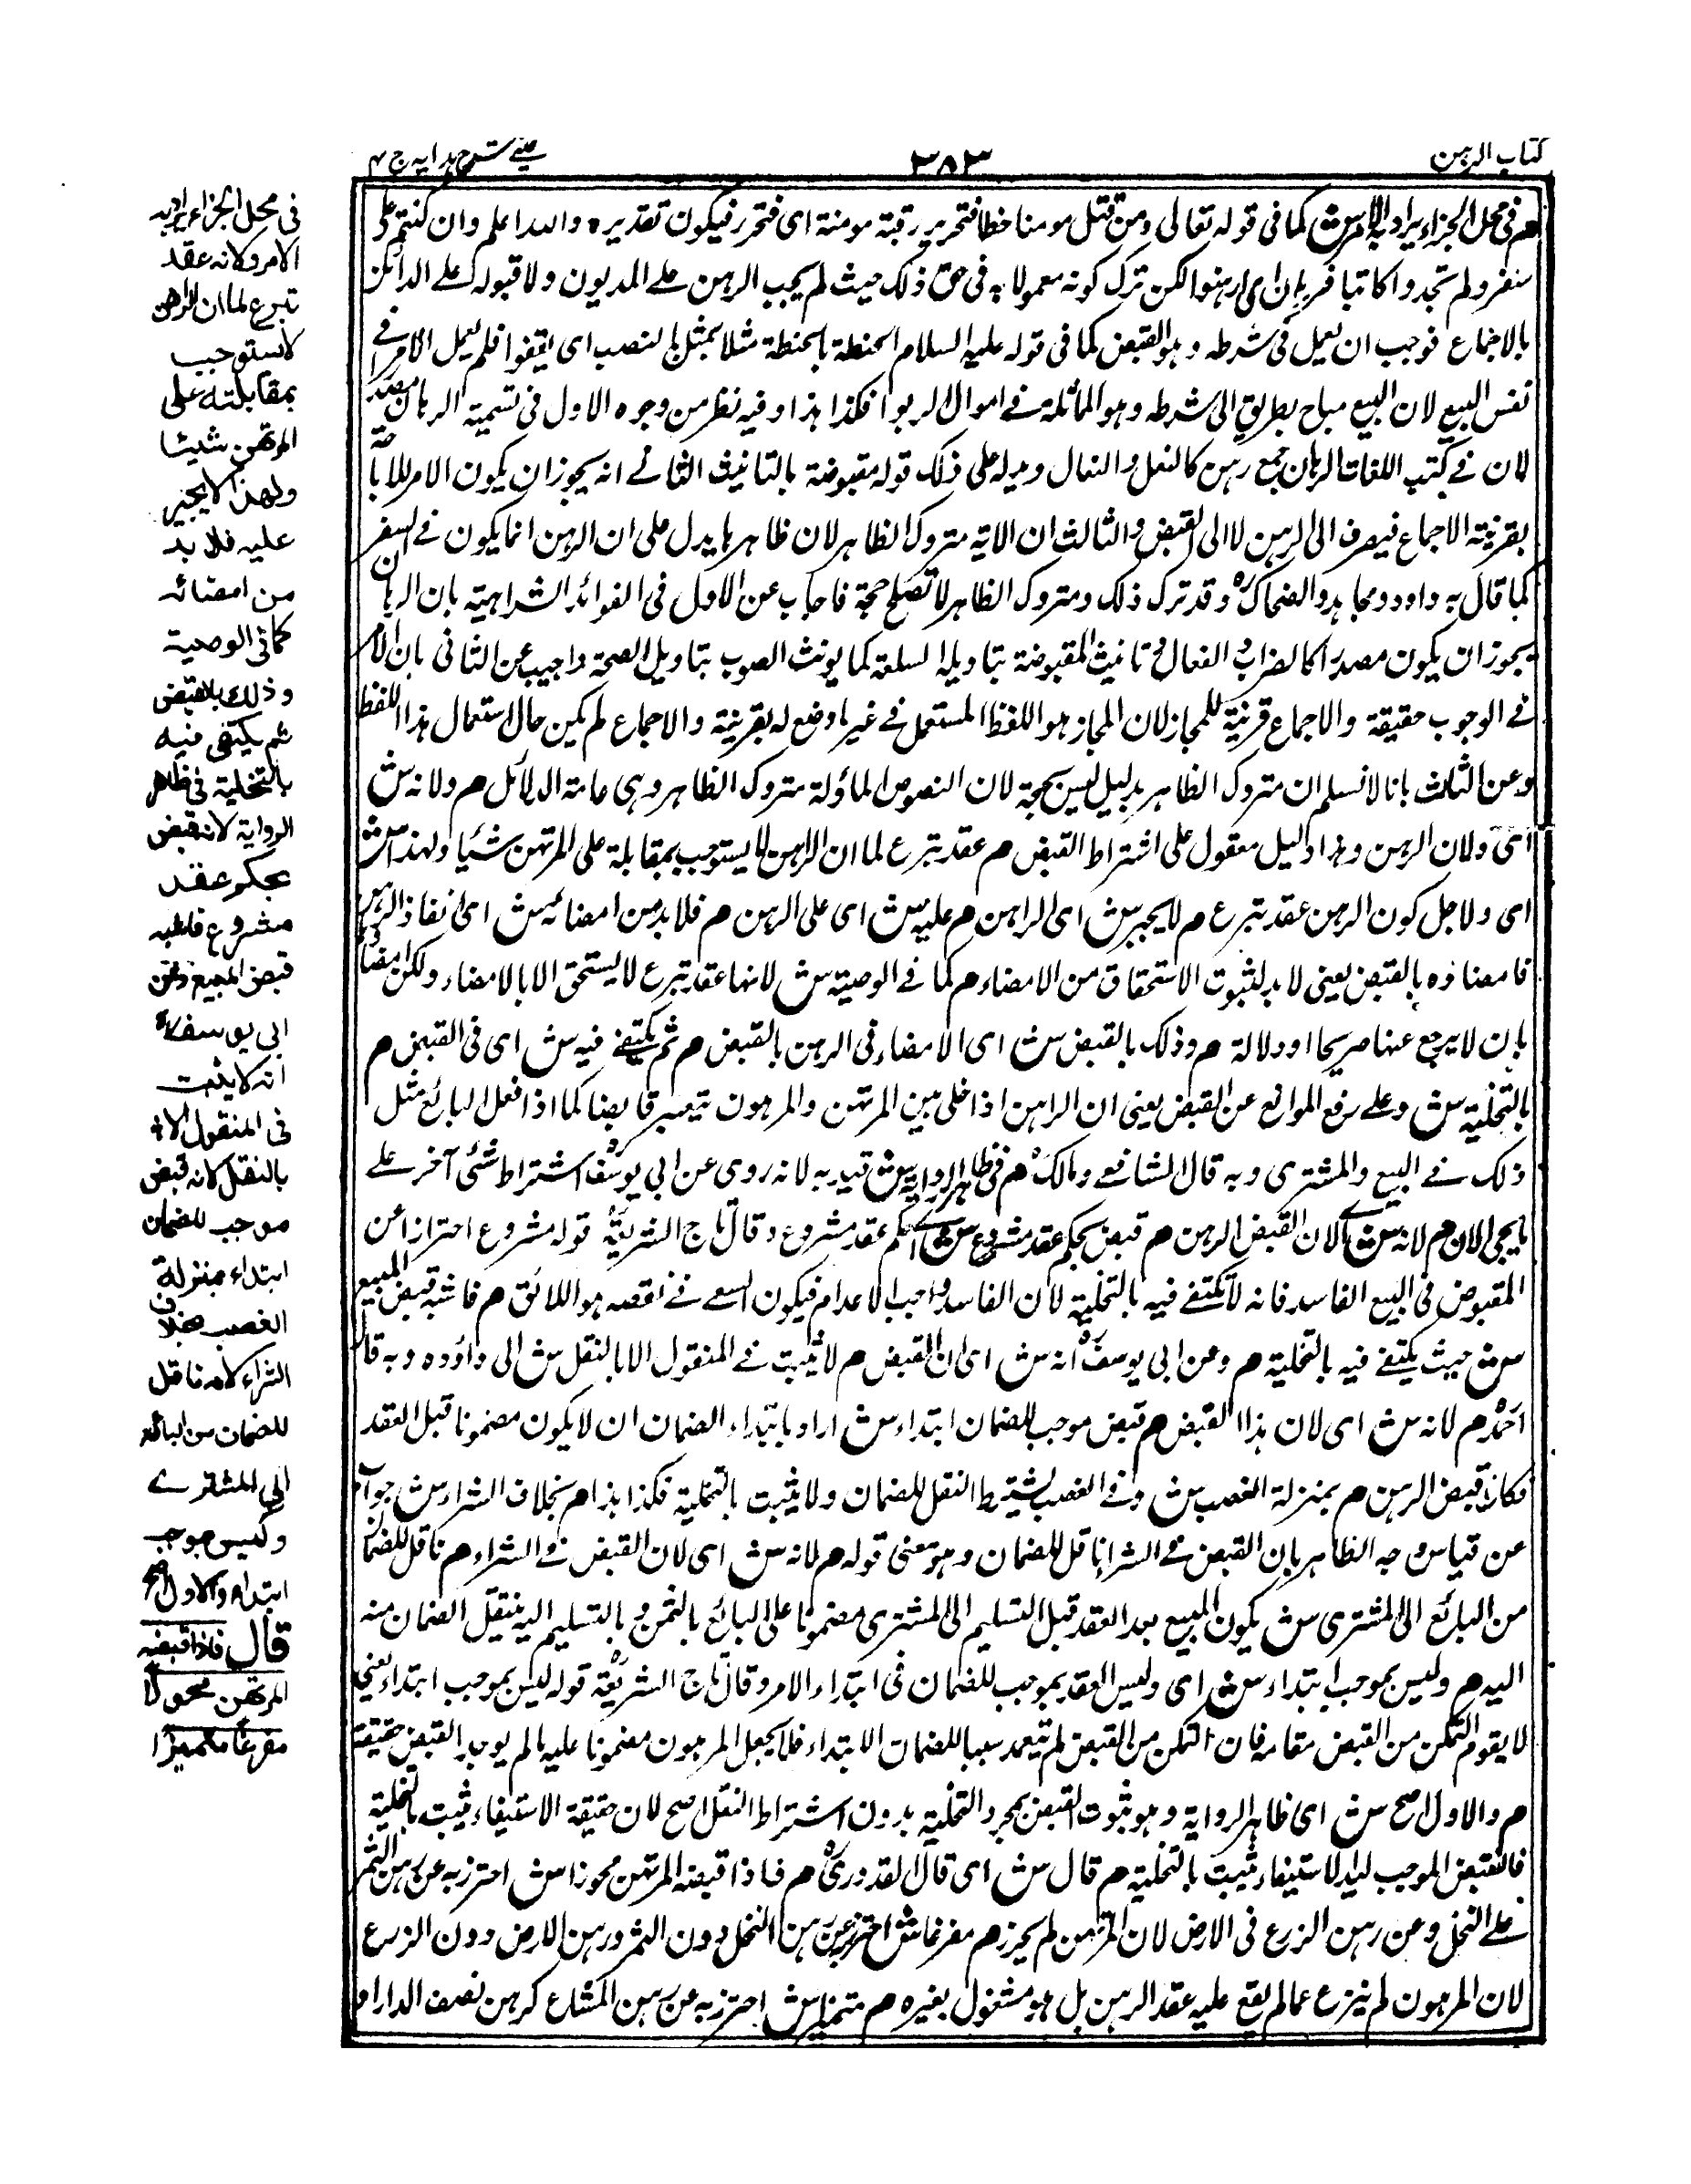 كتاب الرهن
٣٨٣
عيني شرح هدايه ج ٤
م في محل الجزاء يراد به الامر ش كما في قوله تعالى ومن قتل مومنا خطا فتحرير رقبة مومنة اى فتحرر فيكون تقديره والله اعلم وان كنتم على
سفر ولم تجدوا كاتبا فرهان اى ارهنوا لكن ترك كونه معمولا به في حق ذلك حيث لم يجب الرهن على المديون ولا قبوله على الدائن
بالاجماع فوجب ان يعمل في شرطه وهو القبض كما في قوله عليه السلام الحنطة بالحنطة مثلا بمثل بالنصب اى فلم يعمل الامر في
نفس البيع لان البيع مباح بطريق الى شرطه وهو المماثلة في اموال الربوا فكذا هذا وفيه نظر من وجوه الاول في تسمية الرهان مصدر
لان في كتب اللغات الرهان جمع رهن كالنعل والنعال ويدل على ذلك قوله مقبوضة بالتانيث الثاني انه يجوز ان يكون الامر للاباحة
بقرينة الاجماع فيصرف الى الرهن لا الى القبض والثالث ان الاية متروك الظاهر لان ظاهرها يدل على ان الرهن انما يكون في السفر
كما قال به داود ومجاهد والضحاك وقد ترك ذلك ومتروك الظاهر لا تصلح حجة فاجاب عن الاول في الفوائد الشاهية بان الرهان
يجوز ان يكون مصدرا كالضراب والفعال وتانيث المقبوضة بتاويل السلعة كما يونث الصوب بتاويل الصحة واجيب عن الثاني بان الامر
في الوجوب حقيقة والاجماع قرينة للمجاز لان المجاز هو اللفظ المستعمل في غير ما وضع له بقرينة والاجماع لم يكن حال استعمال هذا اللفظ
وعن الثالث بانا لا نسلم ان متروك الظاهر بدليل ليس بحجة لان النصوص المأولة متروك الظاهر وهى عامة الدلائل م ولانه ش
اى ولان الرهن وهذا دليل معقول على اشتراط القبض م عقد تبرع لما ان الراهن لا يستوجب بمقابلة على المرتهن شيا ولهذا ش
اى ولاجل كون الرهن عقد تبرع م لا يجبر ش اى الراهن م عليه ش اى على الرهن م فلا بد من امضائه ش اى انفاذ الرهن
فامضاؤه بالقبض يعنى لا بد لثبوت الاستحقاق من الامضاء م كما في الوصية ش لانها عقد تبرع لا يستحق الا بالامضاء ولكن امضاؤها
بان لا يرجع عنها صريحا او دلالة م وذلك بالقبض ش اى الامضاء في الرهن بالقبض م ثم يكتفى فيه ش اى في القبض م
بالتخلية ش وعلى رفع الموانع عن القبض يعنى ان الراهن اذا خلى بين المرتهن والمرهون يتعبر قابضا كما اذا فعل البائع مثل
ذلك في البيع والمشترى وبه قال الشافعي ومالك م في ظاهر الرواية ش قيد به لانه روى عن ابي يوسف اشتراط شئى آخر على
ما يجى الان م لانه ش اى لان القبض الرهن م قبض بحكم عقد مشروع ش اى بحكم عقد مشروع وقال تاج الشريعة قوله مشروع احتراز عن
المقبوض في البيع الفاسد فانه لا يكتفى فيه بالتخلية لان الفاسد واجب الاعدام فيكون السعى في نقصه هو اللائق م فاشبه قبض المبيع
ش حيث يكتفى فيه بالتخلية م وعن ابي يوسف انه ش اى ان القبض م لا يثبت في المنقول الا بالنقل ش الى داؤده وبه قال
احمد م لانه ش اى لان هذا القبض م قبض موجب للضمان ابتداء ش اراد بابتداء الضمان ان لا يكون مضمونا قبل العقد
فكان قبض الرهن م بمنزلة الغصب ش وفى الغصب يشترط النقل للضمان ولا يثبت بالتخلية فكذا هذا م بخلاف الشراء ش جواب
عن قياس وجه الظاهر بان القبض في الشراء ناقل للضمان وهو معنى قوله م لانه ش اى لان القبض في الشراء م ناقل للضمان
من البائع الى المشترى ش يكون المبيع بعد العقد قبل التسليم الى المشترى مضمونا على البائع بالثمن وبالتسليم اليه ينتقل الضمان منه
اليه م وليس بموجب ابتداء ش اى وليس العقد بموجب للضمان في ابتداء الامر وقال تاج الشريعة قوله ليس بموجب ابتداء يعنى
لا يقوم التمكن من القبض مقامه فان التمكن من القبض لم يتعمد سببا للضمان الابتداء فلا يجعل المرهون مضمونا عليه ما لم يوجد القبض حقيقة
م والاول اصح ش اى ظاهر الرواية وهو ثبوت القبض بمجرد التخلية بدون اشتراط النقل اصح لان حقيقة الاستيفاء يثبت بالتخلية
فالقبض الموجب ليد الاستيفاء يثبت بالتخلية م قال ش اى قال القدورى م فاذا قبضه المرتهن محوزا ش احترز به عن رهن الثمر
على النخل وعن رهن الزرع في الارض لان المرتهن لم يحرز م مفرغا ش احترز عن رهن النخل دون الثمر ورهن الارض دون الزرع
لان المرهون لم ينزع عما لم يقع عليه عقد الرهن بل هو مشغول بغيره م متميزا ش احترز به عن رهن المشاع كرهن نصف الدار او
في محل الجزاء يراد به
الامر ولانه عقد
تبرع لما ان الراهن
لا يستوجب
بمقابلته على
المرتهن شيئا
ولهذا لا يجبر
عليه فلا بد
من امضائه
كما في الوصية
وذلك بالقبض
ثم يكتفى فيه
بالتخلية في ظاهر
الرواية لانه قبض
بحكم عقد
مشروع فاشبه
قبض المبيع وعن
ابي يوسف
انه لا يثبت
في المنقول الا
بالنقل لانه قبض
موجب للضمان
ابتداء بمنزلة
الغصب بخلاف
الشراء لانه ناقل
للضمان من البائع
الى المشترى
وليس بموجب
ابتداء والاول اصح
قال فاذا قبضه
المرتهن محوزا
مفرغا متميزا